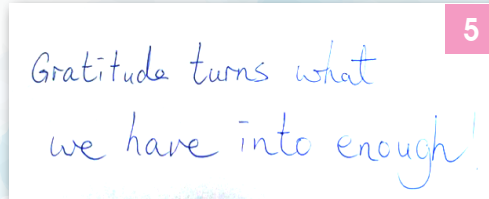 5
Gratitude turns what
we have into enough!